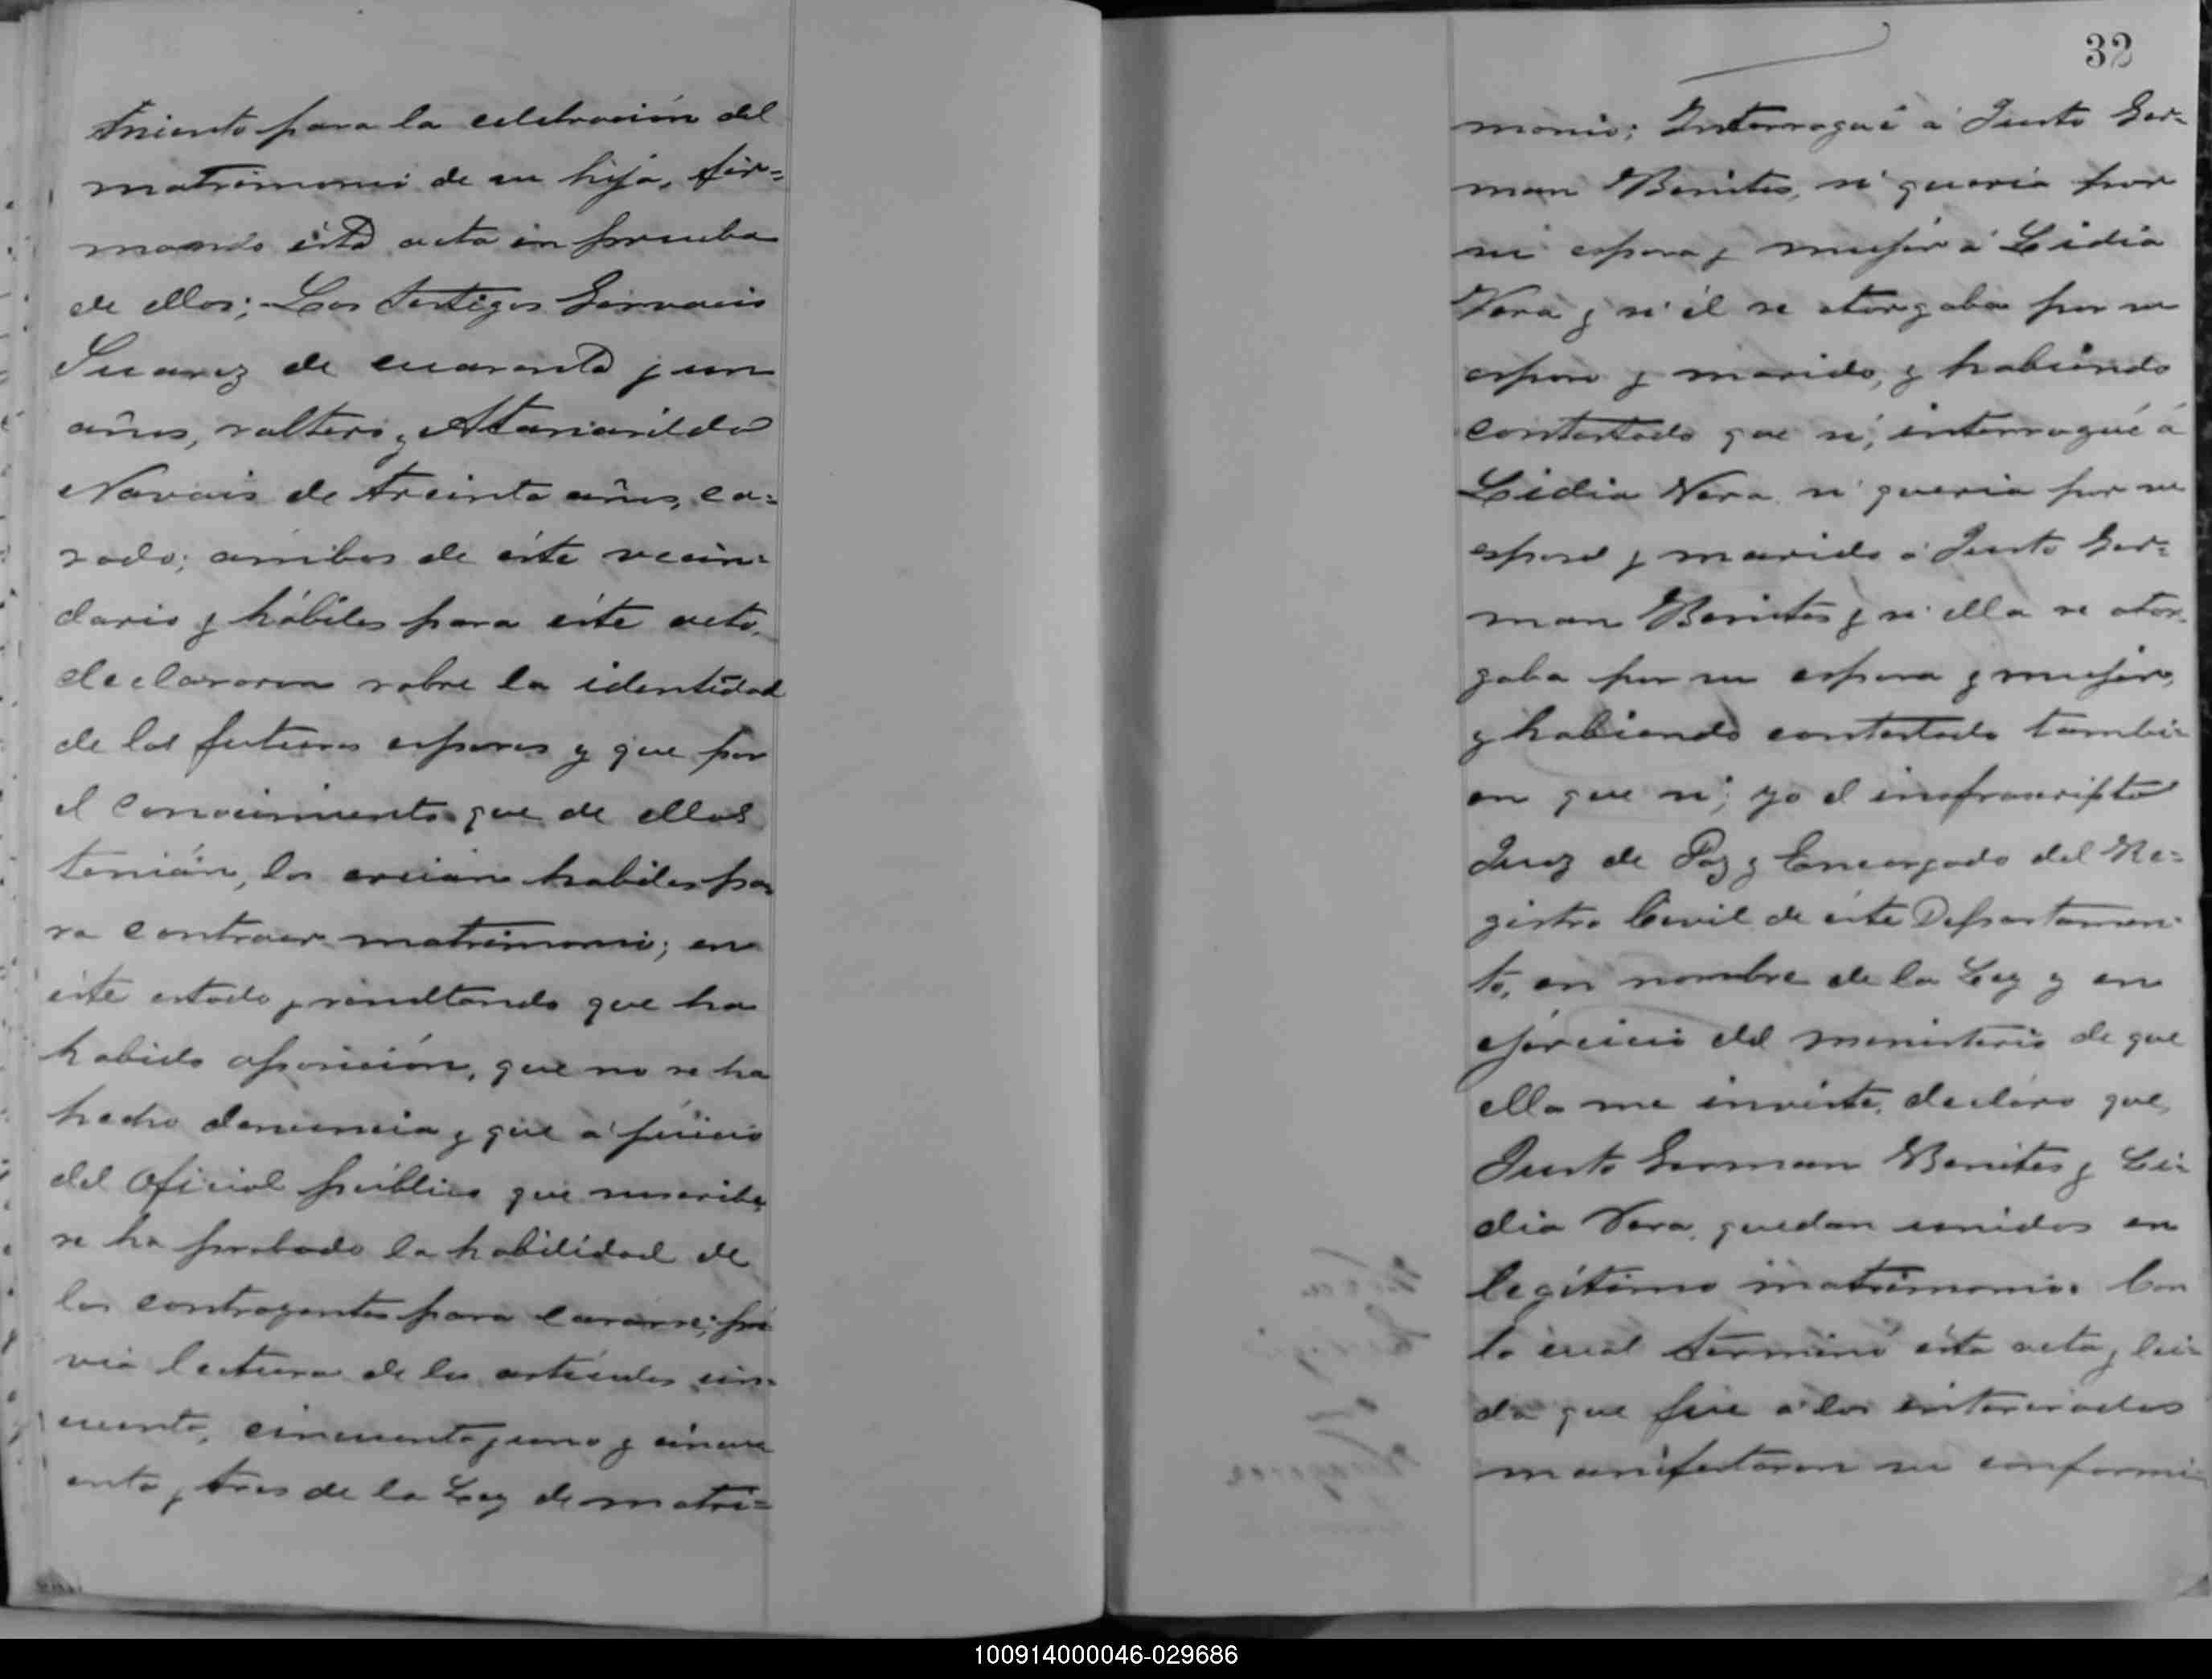 miento para la celebración del
matrimonio de su hija, fir=
mando ésta acta en prueba
de ellos; Los testigos Gervacio
Suarez de cuarenta y un
años, soltero y Atanarildo
Navais de treinta años, ca=
sado; ambos de éste vecin=
dario y hábiles para éste acto,
declararon sobre la identidad
de los futuros esposos y que por
el conocimiento que de ellos
tenián, los creian habiles pa
ra contraer matrimonio; en
éste estado y resultando que ha
habido oposición, que no se ha
hecho denuncia y que á juicio
del Oficial público que suscribe,
se ha probado la habilidad de
los contrayentes para casarse; pré
via lectura de los artículos cin=
cuenta, cincuenta y uno y cincu
enta y tres de la Ley de matri=
32
monio; Interrogué á Justo Ger=
man Benites, si queria por
su esposa y mujer á Lidia
Vera y si él se otorgaba por su
esposo y marido, y habiendo
contestado que si, interrogué á
Lidia Vera si queria por su
esposo y marido á Justo Ger=
man Benites y si ella se otor=
gaba por su esposa y mujer,
y habiendo contestado tambi=
en que si; yo el infrascripto
Juez de Paz y Encargado del Re=
gistro Civil de éste Departamen=
to, en nombre de la Ley y en
ejercicio del ministerio de que
ella me inviste, declaro que,
Justo German Benites y Li=
dia Vera, quedan unidos en
legítimo matrimonio. Con
lo cual terminó ésta acta, lei=
da que fué á los interesados
manifestaron su conformi
100914000046-029686